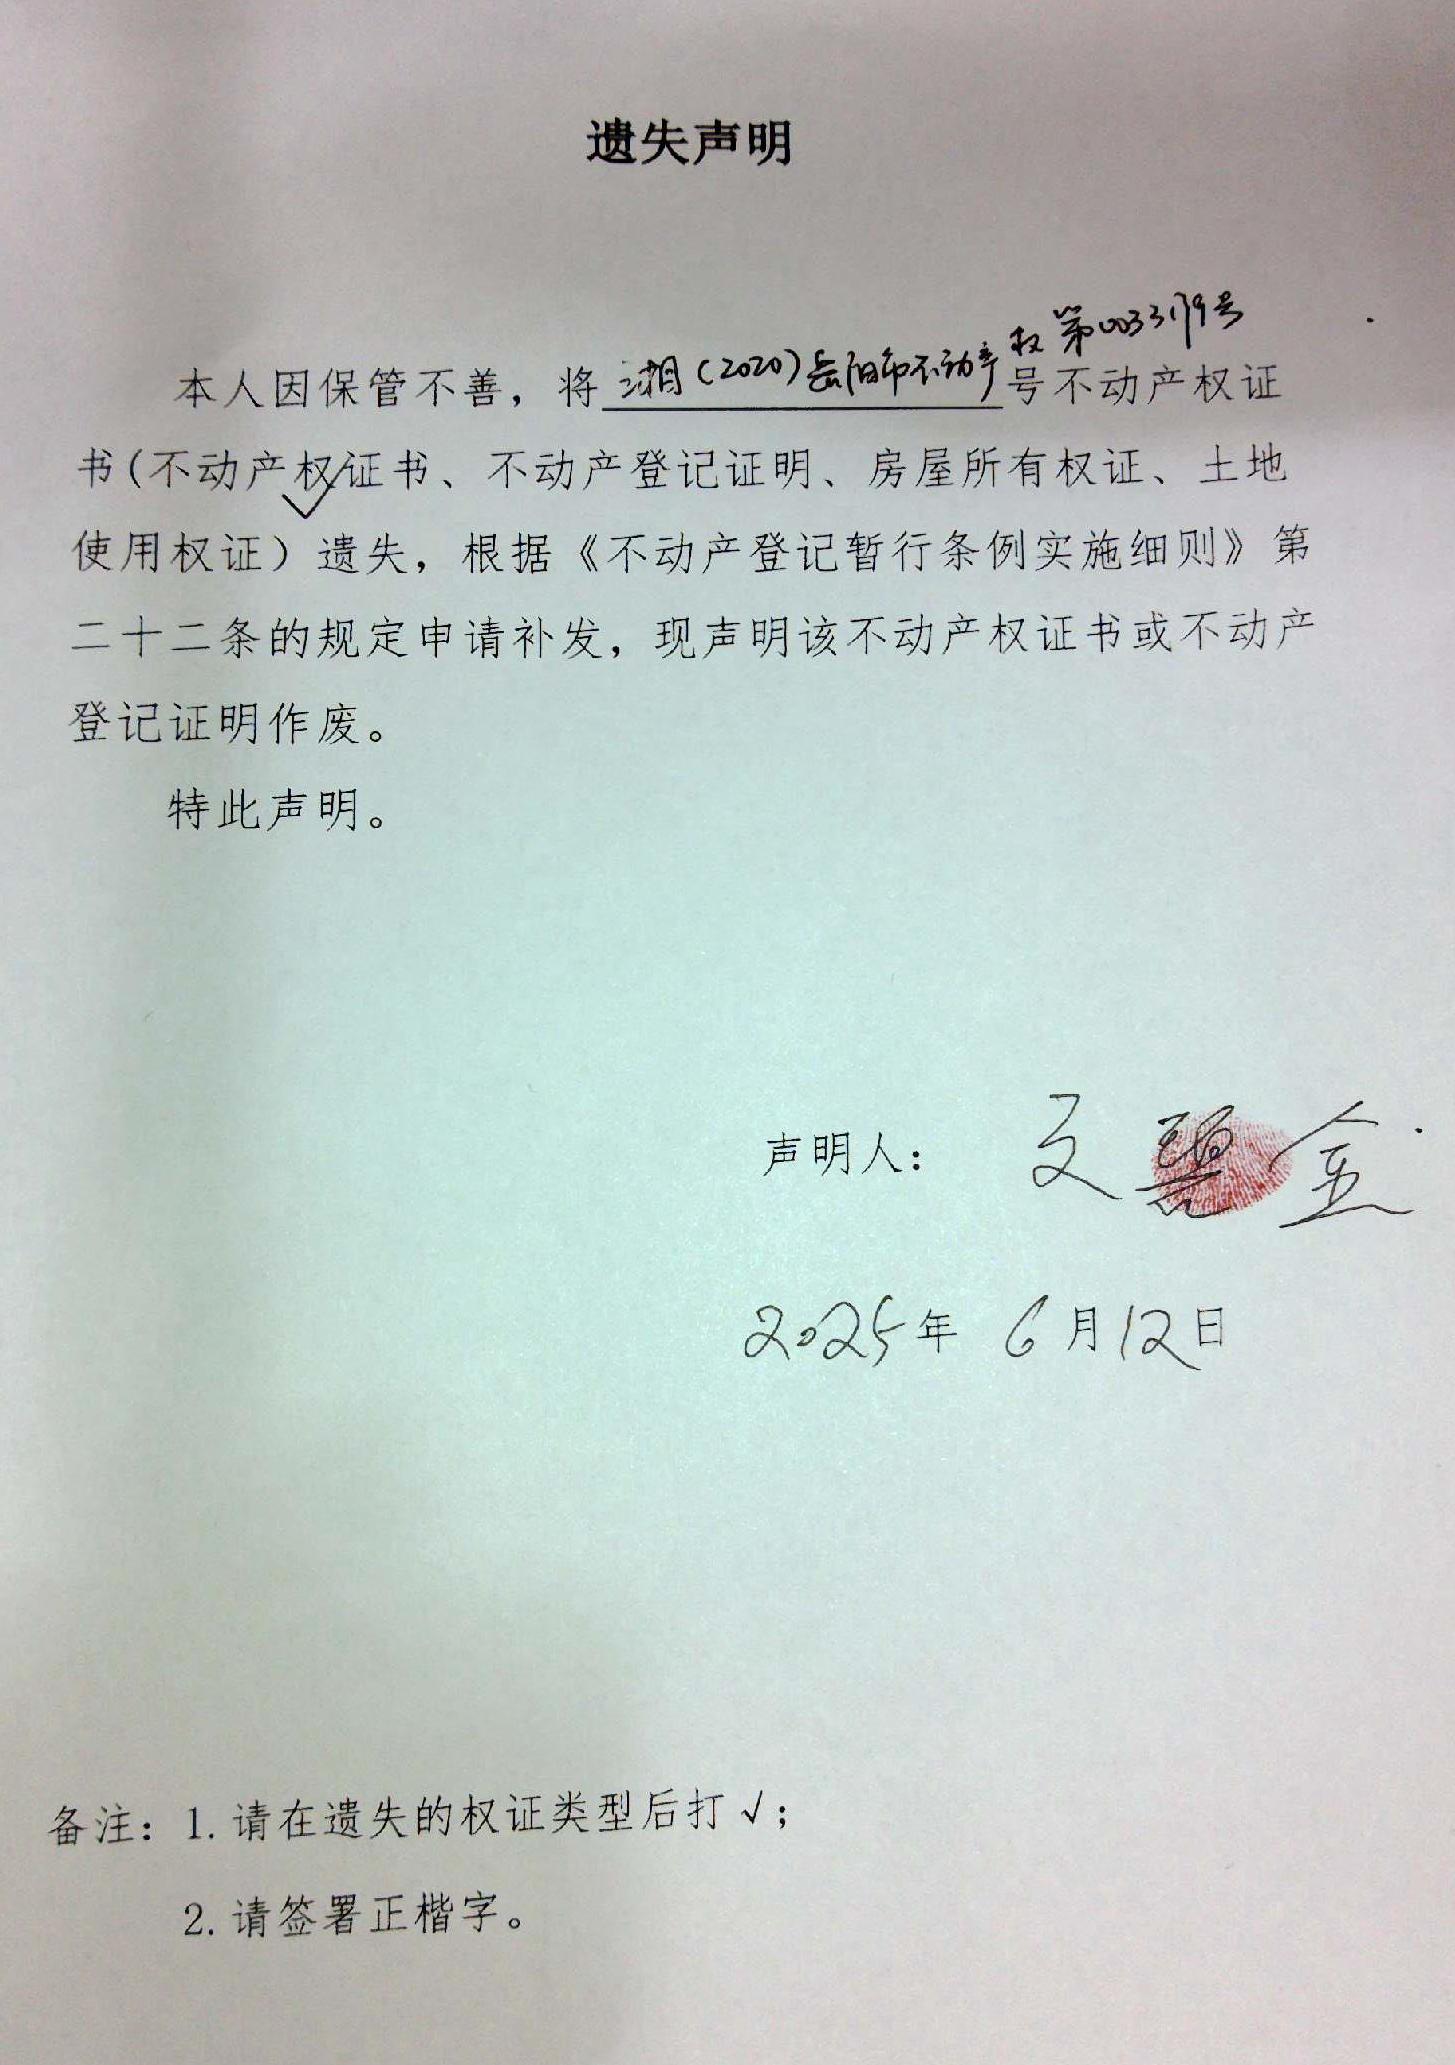 遗失声明
本人因保管不善，将湘(2020)岳阳市不动产权第号不动产权证
书(不动产权证书、不动产登记证明、房屋所有权证、土地
使用权证）遗失，根据《不动产登记暂行条例实施细则》第
二十二条的规定申请补发，现声明该不动产权证书或不动产
登记证明作废。
特此声明。
声明人：文碧金
2025年 6月12日
备注：1.请在遗失的权证类型后打√；
2.请签署正楷字。